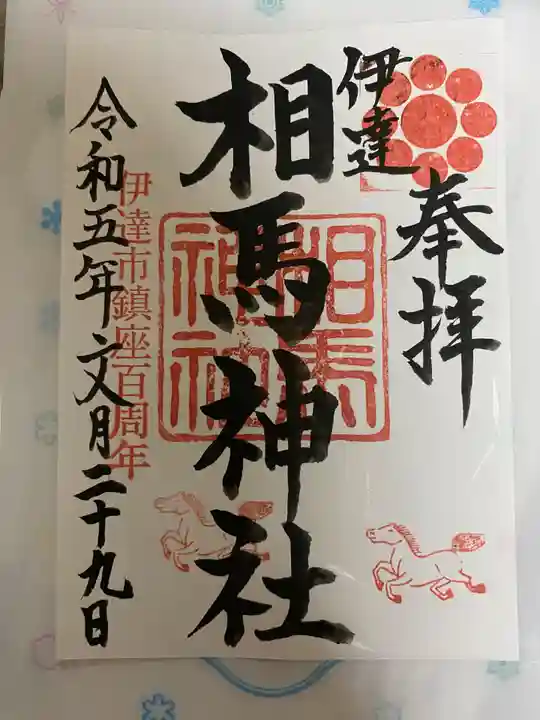 奉拝
伊達
相馬神社
相馬
神社
伊達市鎮座百周年
令和五年文月二十九日